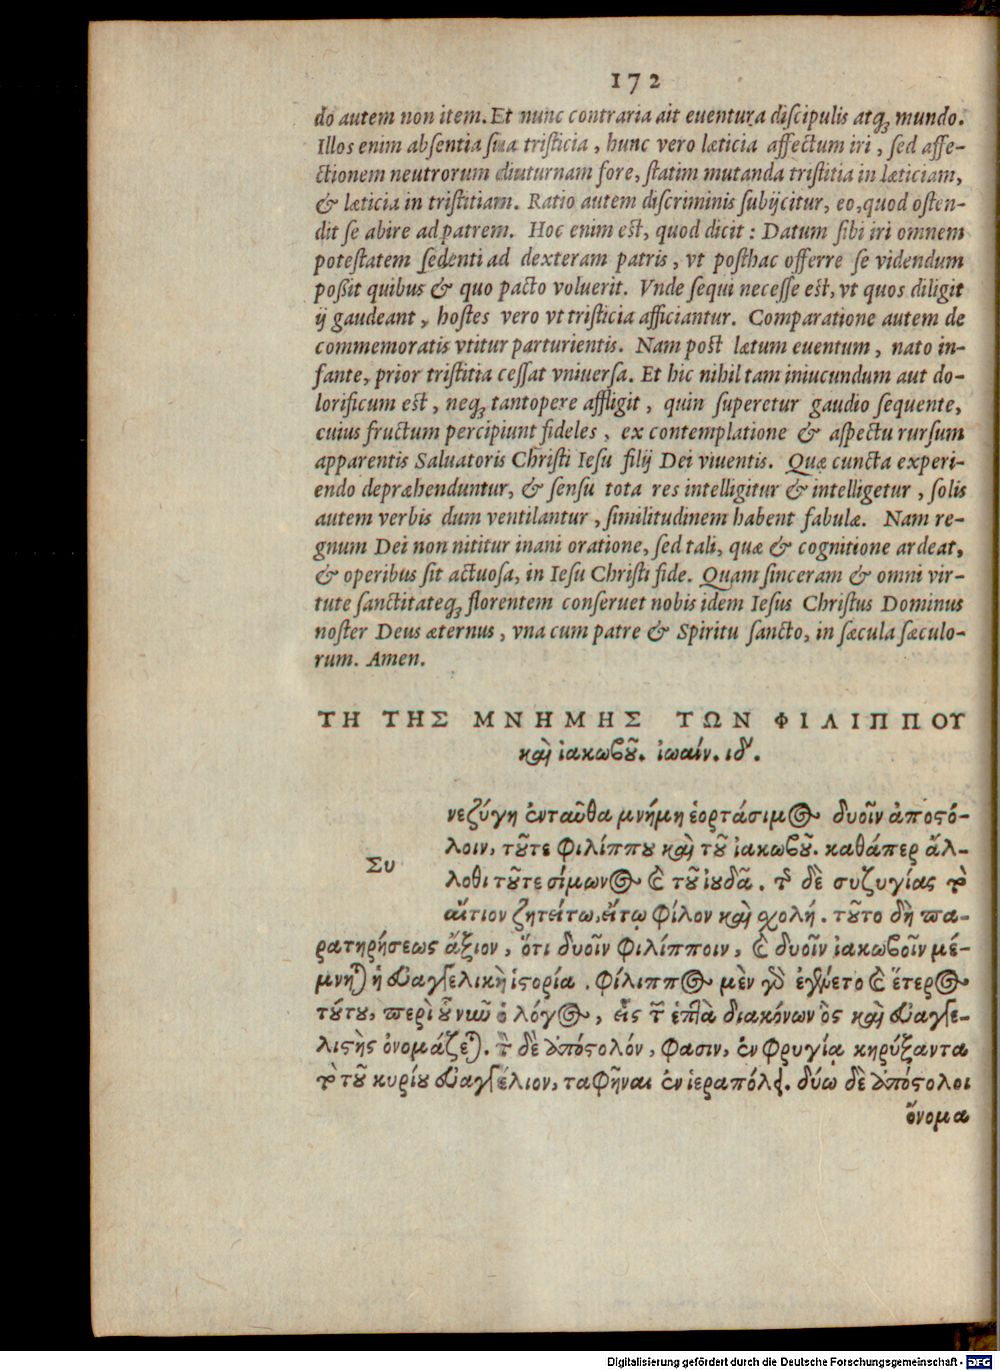 172
do autem non item. Et nunc contraria ait euentura discipulis atq; mundo.
Illos enim absentia sua tristicia, hunc vero læticia affectum iri, sed affe-
ctionem neutrorum diuturnam fore, statim mutanda tristitia in læticiam,
& læticia in tristitiam. Ratio autem discriminis subijcitur, eo, quod osten-
dit se abire ad patrem. Hoc enim est, quod dicit: Datum sibi iri omnem
potestatem sedenti ad dexteram patris, vt posthac offerre se videndum
possit quibus & quo pacto voluerit. Vnde sequi necesse est, vt quos diligit
ij gaudeant, hostes vero vt tristicia afficiantur. Comparatione autem de
commemoratis vtitur parturientis. Nam post lætum euentum, nato in-
fante, prior tristitia cessat vniuersa. Et hic nihil tam iniucundum aut do-
lorificum est, neq; tantopere affligit, quin superetur gaudio sequente,
cuius fructum percipiunt fideles, ex contemplatione & aspectu rursum
apparentis Saluatoris Christi Iesu filij Dei viuentis. Quæ cuncta experi-
endo depræhenduntur, & sensu tota res intelligitur & intelligetur, solis
autem verbis dum ventilantur, similitudinem habent fabulæ. Nam re-
gnum Dei non nititur inani oratione, sed tali, quæ & cognitione ardeat,
& operibus sit actuosa, in Iesu Christi fide. Quam sinceram & omni vir-
tute sanctitateq; florentem conseruet nobis idem Iesus Christus Dominus
noster Deus æternus, vna cum patre & Spiritu sancto, in sæcula sæculo-
rum. Amen.
ΤΗ ΤΗΣ ΜΝΗΜΗΣ ΤΩΝ ΦΙΛΙΠΠΟΥ
καὶ ἰακώβου. ἰωάν. ιδ'.
Συ νεζύγη ἐνταῦθα μνήμη ἑορτάσιμος δυοῖν ἀποστό-
λοιν, τοῦτε φιλίππου καὶ τοῦ ἰακώβου. καθάπερ ἄλ-
λοθι τοῦτε σίμωνος καὶ τοῦ ἰούδα. τῆς δὲ συζυγίας τὸ
αἴτιον ζητείτω, εἴτῳ φίλον καὶ σχολή. τοῦτο δὴ πα-
ρατηρήσεως ἄξιον, ὅτι δυοῖν φιλίπποιν, καὶ δυοῖν ἰακώβοιν μέ-
μνηται ἡ εὐαγγελικὴ ἱστορία. φίλιππος μὲν γὰρ ἐγένετο καὶ ἕτερος
τούτου, περὶ οὗ νῦν ὁ λόγος, εἷς τῶν ἑπτὰ διακόνων ὃς καὶ εὐαγγε-
λιστὴς ὀνομάζεται. τὸν δὲ ἀπόστολόν, φασιν, ἐν φρυγίᾳ κηρύξαντα
τὸ τοῦ κυρίου εὐαγγέλιον, ταφῆναι ἐν ἱεραπόλει. δύω δὲ ἀπόστολοι
ὄνομα
Digitalisierung gefördert durch die Deutsche Forschungsgemeinschaft - DFG